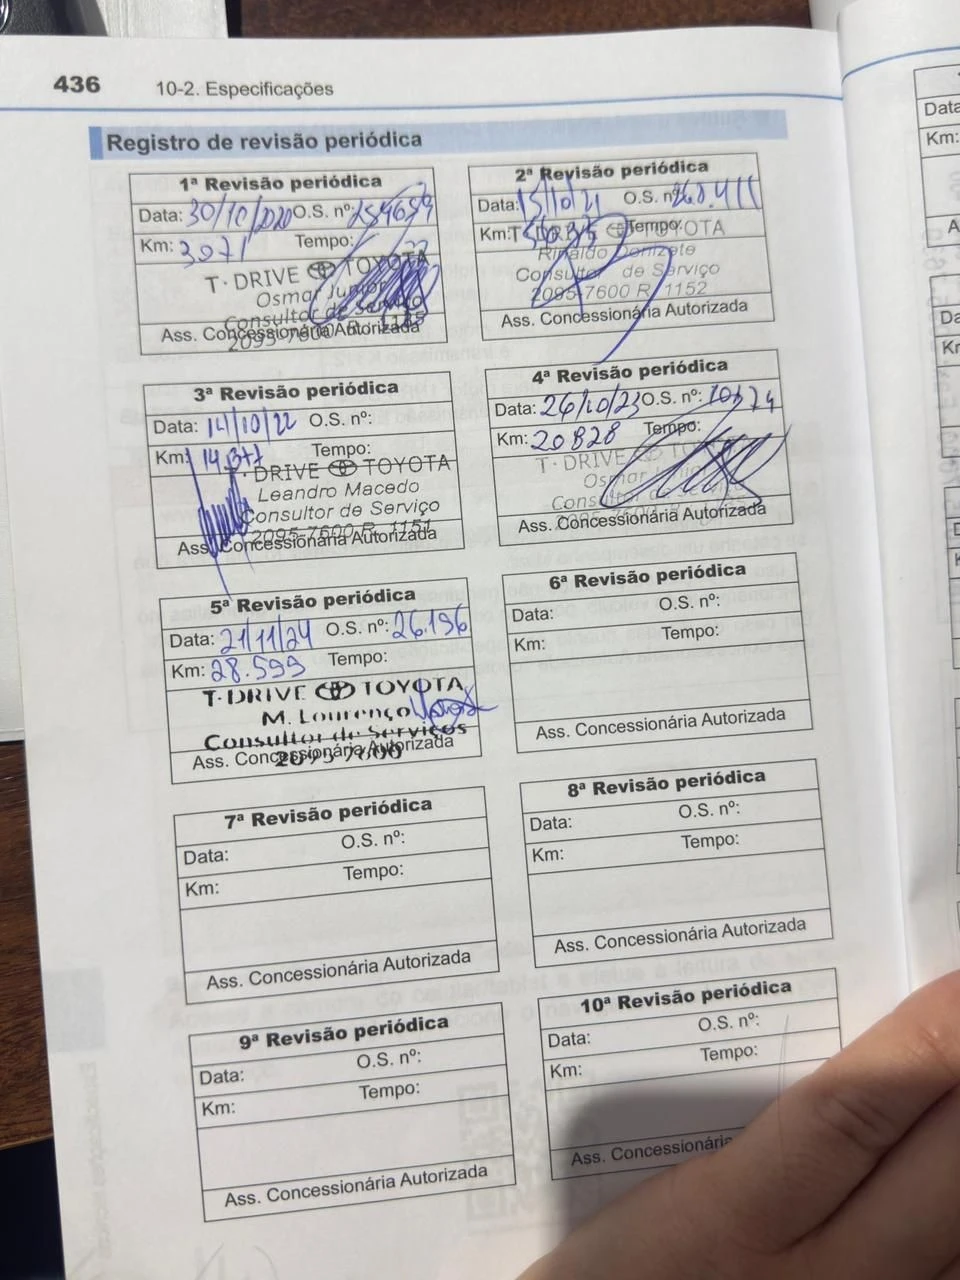 436 10-2. Especificações
Registro de revisão periódica
1ª Revisão periódica
Data: 30/10/2020 O.S. nº:
Km: 3071 Tempo:
T·DRIVE TOYOTA
Osmar Junior
Consultor de Serviço
2095-7600 R. 1135
Ass. Concessionária Autorizada
2ª Revisão periódica
Data: 15/10/21 O.S. nº: 268.411
Km: Tempo:
T·DRIVE TOYOTA
Rinaldo Donizete
Consultor de Serviço
2095-7600 R. 1152
Ass. Concessionária Autorizada
3ª Revisão periódica
Data: 14/10/22 O.S. nº:
Km: 14.377 Tempo:
T·DRIVE TOYOTA
Leandro Macedo
Consultor de Serviço
2095-7600 R. 1151
Ass. Concessionária Autorizada
4ª Revisão periódica
Data: 26/10/23 O.S. nº:
Km: 20828 Tempo:
T·DRIVE TOYOTA
Osmar Junior
Consultor de Serviço
Ass. Concessionária Autorizada
5ª Revisão periódica
Data: 21/11/24 O.S. nº: 26.196
Km: 28.599 Tempo:
T·DRIVE TOYOTA
M. Lourenço
Consultor de Serviços
2095-7600
Ass. Concessionária Autorizada
6ª Revisão periódica
Data: O.S. nº:
Km: Tempo:
Ass. Concessionária Autorizada
7ª Revisão periódica
Data: O.S. nº:
Km: Tempo:
Ass. Concessionária Autorizada
8ª Revisão periódica
Data: O.S. nº:
Km: Tempo:
Ass. Concessionária Autorizada
9ª Revisão periódica
Data: O.S. nº:
Km: Tempo:
Ass. Concessionária Autorizada
10ª Revisão periódica
Data: O.S. nº:
Km: Tempo:
Ass. Concessionária
Data
Km: